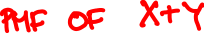 PMF OF X+Y